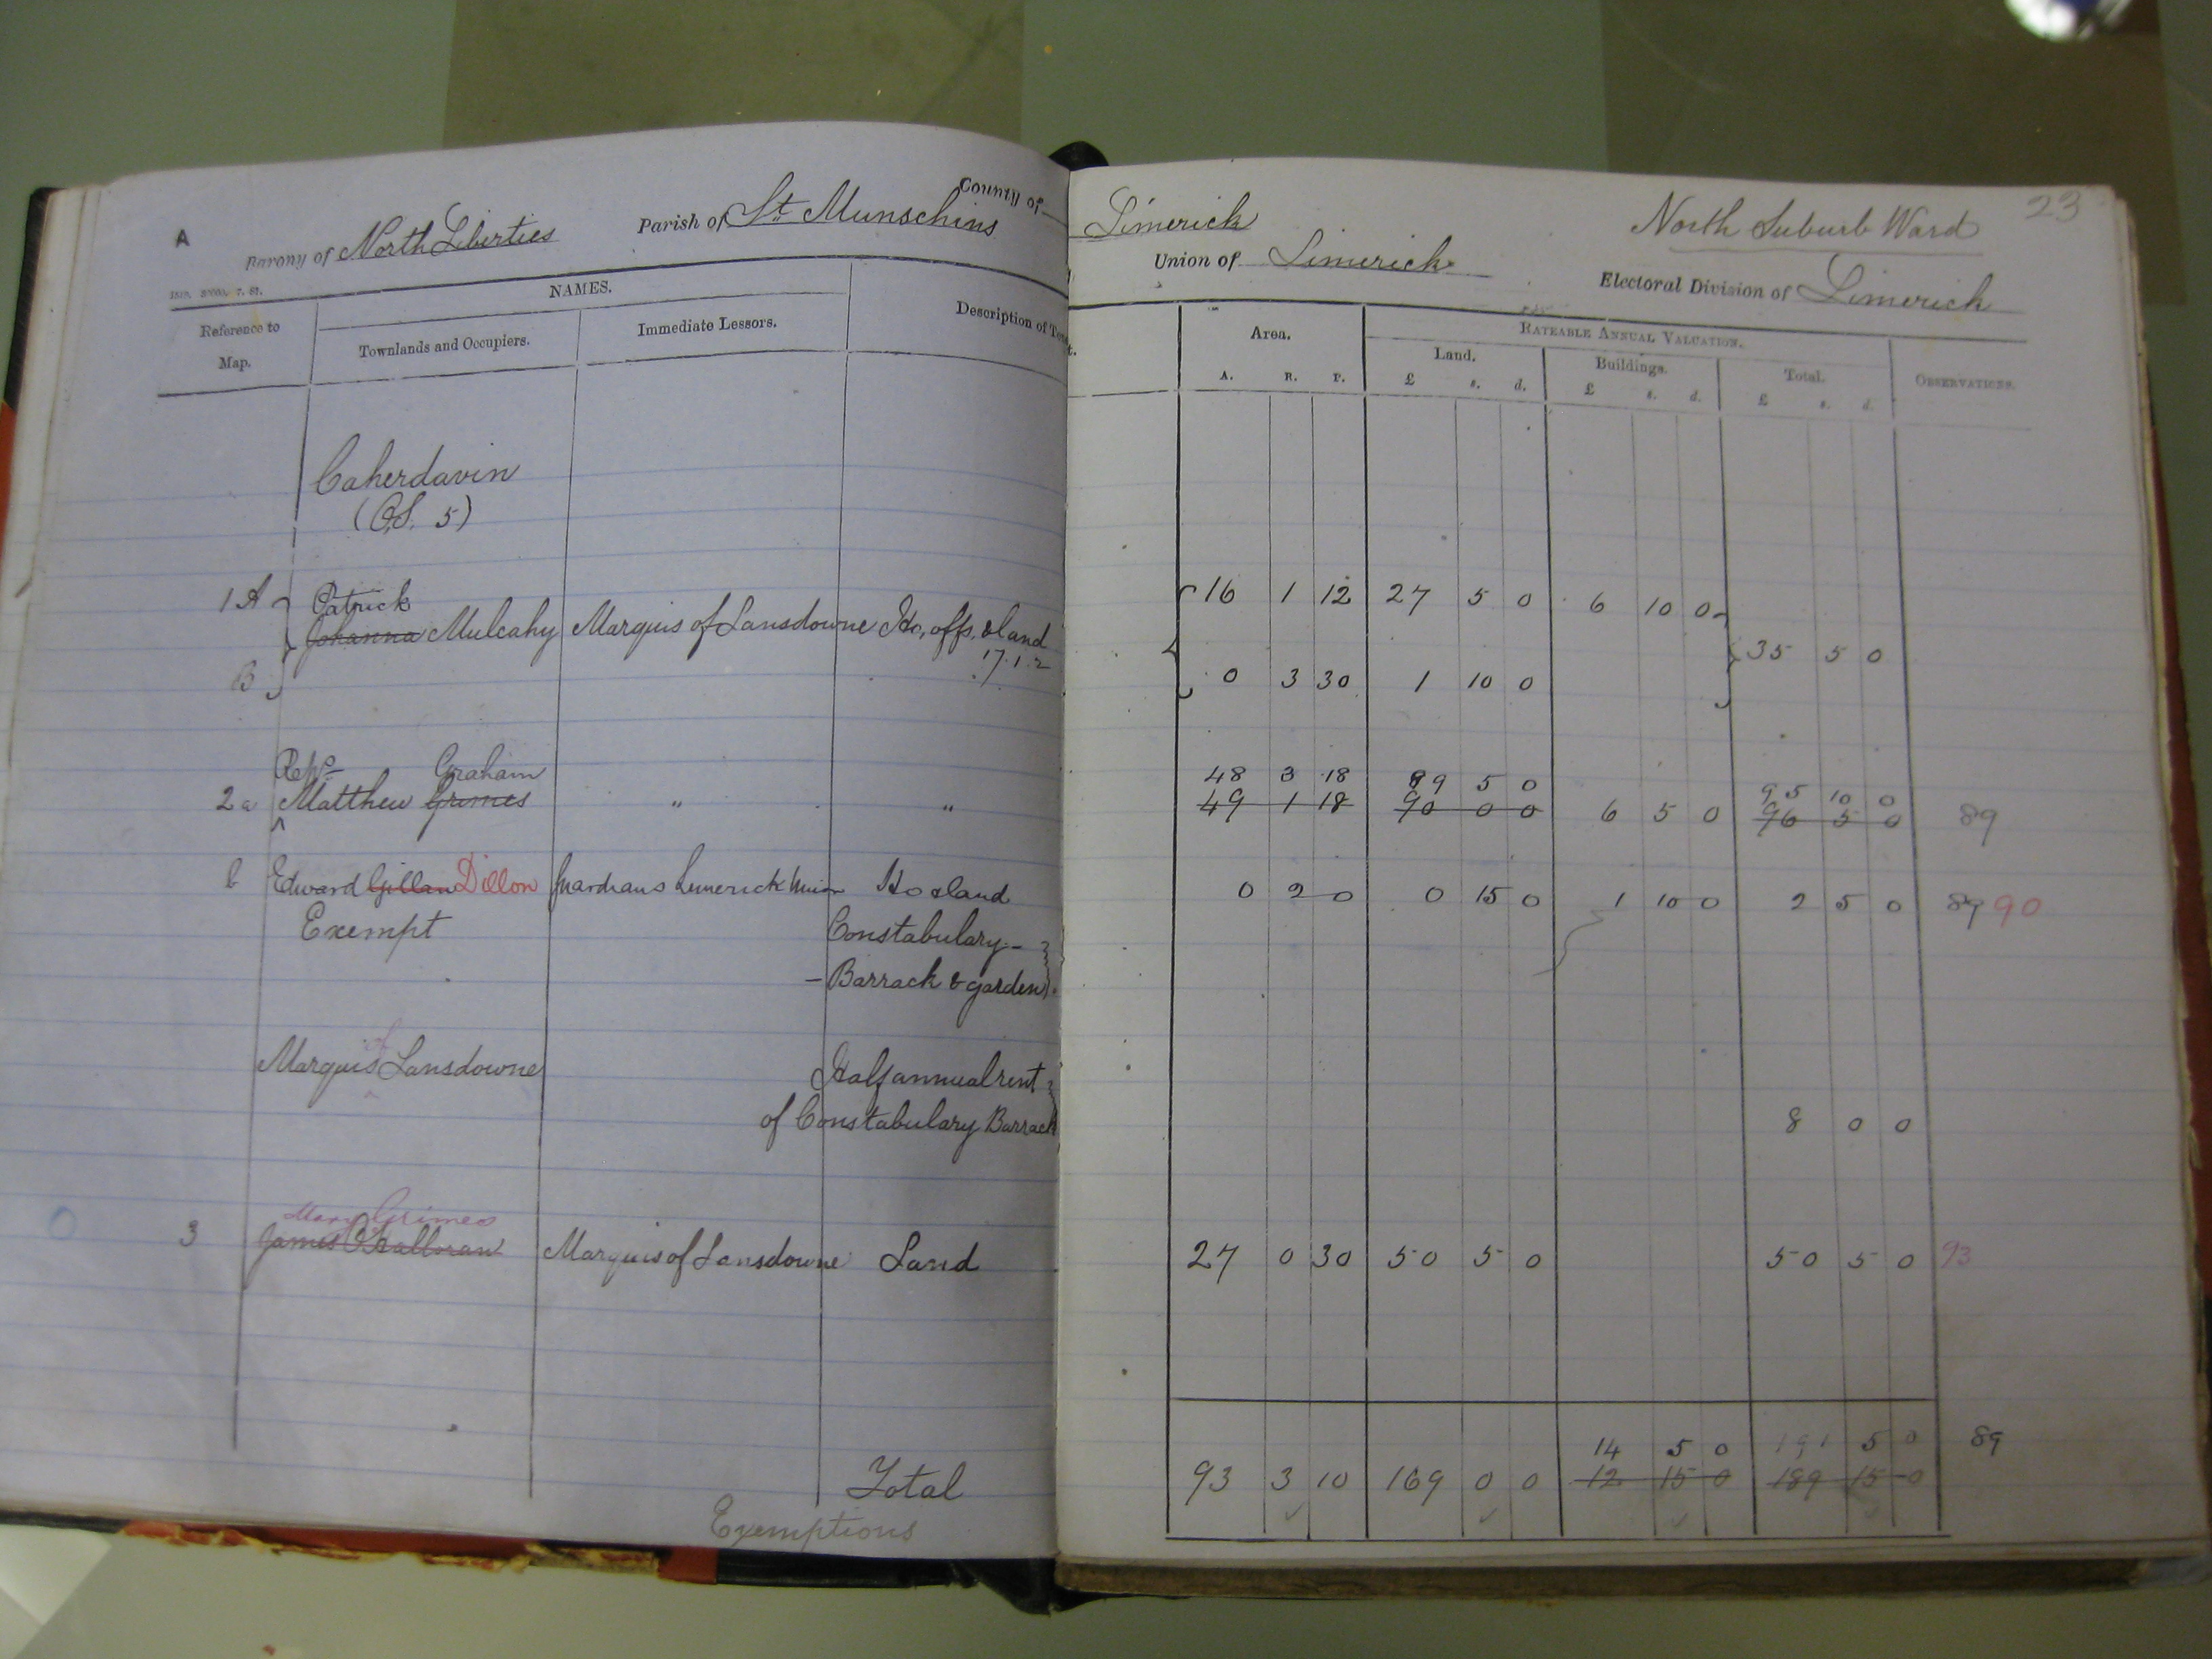 A
Barony of North Liberties Parish of St. Munschins County of Limerick North Suburb Ward 23
Union of Limerick Electoral Division of Limerick
NAMES.
Reference to Map. Townlands and Occupiers. Immediate Lessors. Description of Area. RATEABLE ANNUAL VALUATION. OBSERVATIONS.
Land. Buildings. Total.
A. R. P. £ s. d. £ s. d. £ s. d.
Caherdavin
(O.S. 5)
Patrick
1 A Johanna Mulcahy Marquis of Lansdowne Ho, offs. & land 16 1 12 27 5 0 6 10 0
17.1.2
35 5 0
B 0 3 30 1 10 0
Reps Graham 48 3 18 89 5 0 95 10 0
2 a Matthew Grimes " " 49 1 18 90 0 0 6 5 0 96 5 0 89
b Edward Gillan Dillon Guardians Limerick Union Ho & land 0 2 0 0 15 0 1 10 0 2 5 0 89 90
Exempt Constabulary
Barrack & garden
of
Marquis Lansdowne Half annual rent
of Constabulary Barrack 8 0 0
Mary Grimes
3 James O'Halloran Marquis of Lansdowne Land 27 0 30 50 5 0 50 5 0 93
14 5 0 191 5 0 89
Total 93 3 10 169 0 0 12 15 0 189 15 0
Exemptions